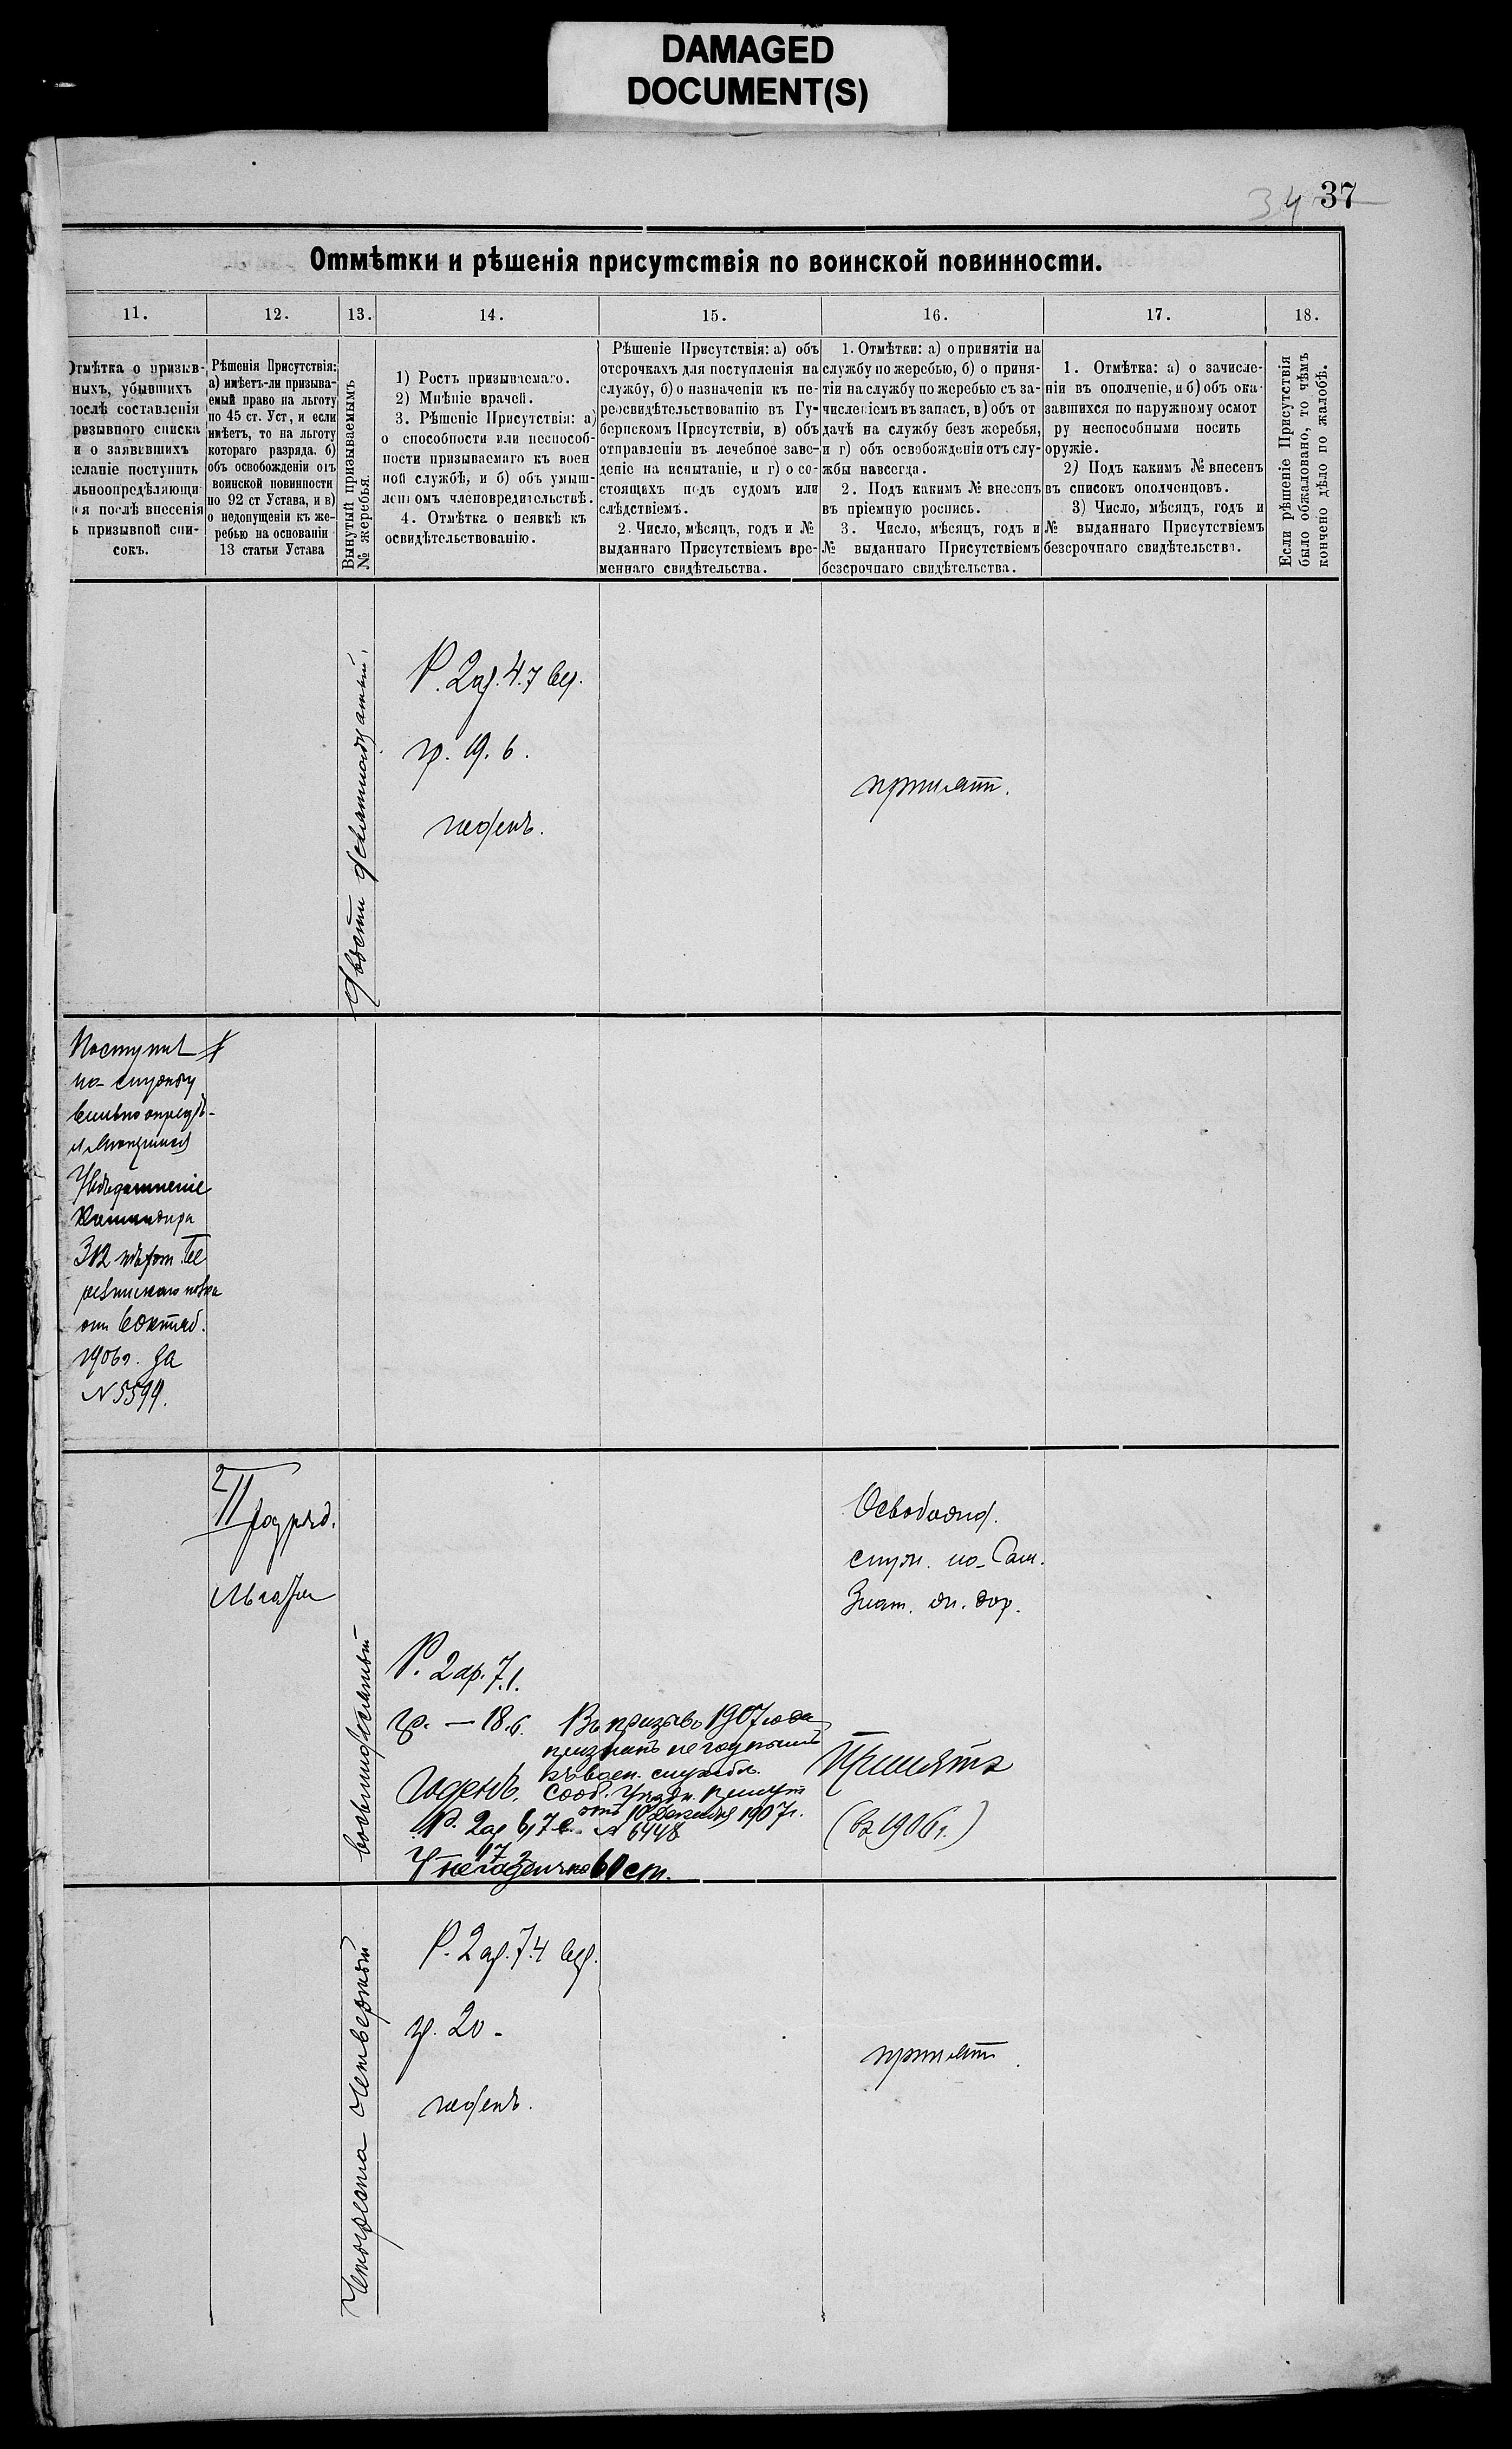 DAMAGED
DOCUMENT(S)
34 37
Отмѣтки и рѣшенія присутствія по воинской повинности.
11.
12.
13.
14.
15.
16.
17.
18.
Отмѣтка о призыв-
ныхъ, убывшихъ
послѣ составленія
ризывного списка
и о заявившихъ
желаніе поступить
льноопредѣляющи
ся послѣ внесенія
ъ призывной спи-
сокъ.
Рѣшенія Присутствія:
а) имѣетъ-ли призыва-
емый право на льготу
по 45 ст. Уст, и если
имѣетъ, то на льготу
котораго разряда. б)
объ освобожденіи отъ
воинской повинности
по 92 ст Устава, и в)
о недопущеніи къ же-
ребью на основаніи
13 статьи Устава
Вынутый призываемымъ
№ жеребья.
1) Ростъ призываемаго.
2) Мнѣніе врачей.
3. Рѣшеніе Присутствія: а)
о способности или неспособ-
ности призываемаго къ воен
ной службѣ, и б) объ умыш-
ленномъ членовредительствѣ.
4. Отмѣтка о неявкѣ къ
освидѣтельствованію.
Рѣшеніе Присутствія: а) объ
отсрочкахъ для поступленія на
службу, б) о назначеніи къ пе-
реосвидѣтельствованію въ Гу-
бернскомъ Присутствіи, в) объ
отправленіи въ лечебное заве-
деніе на испытаніе, и г) о со-
стоящихъ подъ судомъ или
слѣдствіемъ.
2. Число, мѣсяцъ, годъ и №
выданнаго Присутствіемъ вре-
меннаго свидѣтельства.
1. Отмѣтки: а) о принятіи на
службу по жеребью, б) о приня-
тіи на службу по жеребью съ за-
численіемъ въ запасъ, в) объ от
дачѣ на службу безъ жеребья,
и г) объ освобожденіи отъ слу-
жбы навсегда.
2. Подъ какимъ № внесенъ
въ пріемную роспись.
3. Число, мѣсяцъ, годъ и
№ выданнаго Присутствіемъ
безсрочнаго свидѣтельства.
1. Отмѣтка: а) о зачисле-
ніи въ ополченіе, и б) объ ока-
завшихся по наружному осмот
ру неспособными носить
оружіе.
2) Подъ какимъ № внесенъ
въ списокъ ополченцовъ.
3) Число, мѣсяцъ, годъ и
№ выданнаго Присутствіемъ
безсрочнаго свидѣтельства.
Если рѣшеніе Присутствія
было обжаловано, то чѣмъ
кончено дѣло по жалобѣ.
двѣсти девятнадцатый.
Р. 2 ар. 4.7 вер.
гр. 19. 6.
годенъ.
принят.
Поступил
на службу
вольноопредѣ-
ляющимся
Увѣдомленіе
Командира
312 пѣхот.
полка
от 6 октяб.
1906 г. За
N 5599.
II разряд.
льгота
восьмидесятый
Р. 2 ар. 7.1.
гр. — 18.6.
Годенъ.
Въ призывъ 1907 года
признанъ негоднымъ
къ воен. службѣ.
Сооб. присут
отъ 10 1907 г.
№ 6448
Р. 2 ар 6,7
негоденъ 60 ст.
Освобожд.
служ.
Принятъ
(в 1906 г.)
Четыреста четвертый
Р. 2 ар. 7.4 вер.
гр. 20 -
годенъ.
принят.